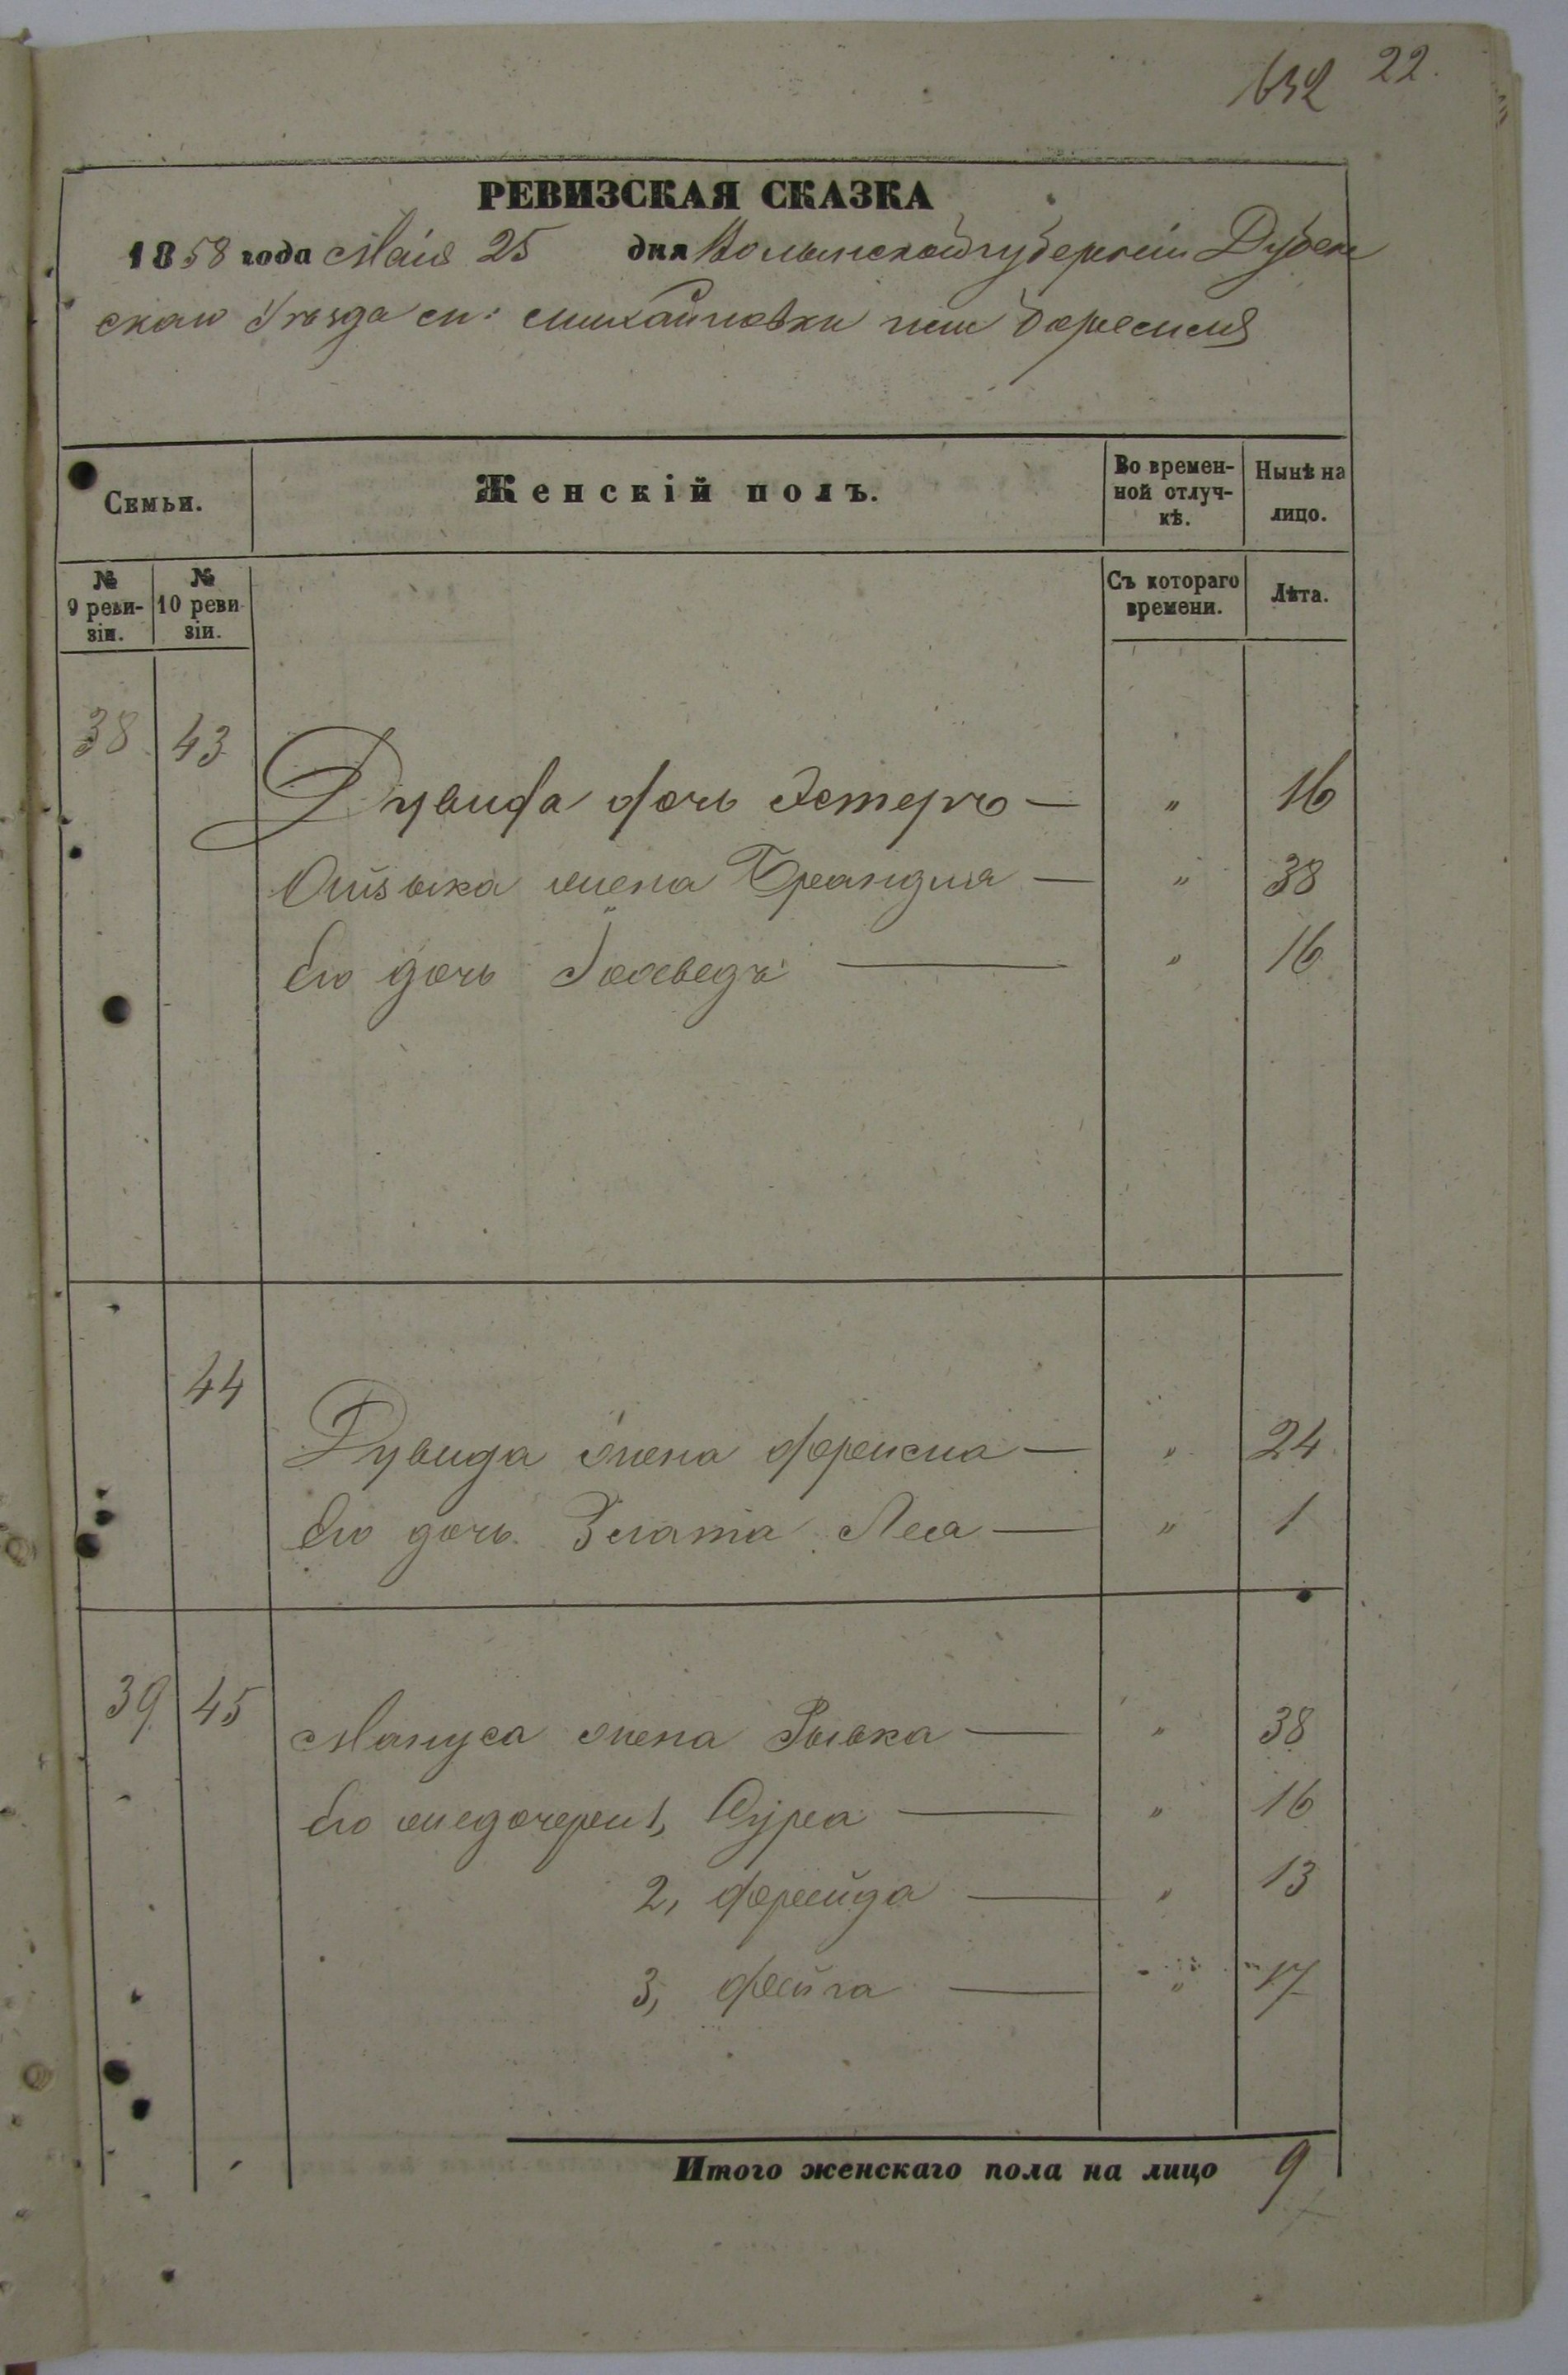 632 22.
РЕВИЗСКАЯ СКАЗКА
1858 года Маія 25 дня Волынской губерніи Дубен
скаго Уѣзда
Семьи.
Женскій полъ.
Во времен-
ной отлуч-
кѣ.
Нынѣ на
лицо.
№
9 реви-
зіи.
№
10 реви
зіи.
Съ котораго
времени.
Лѣта.
38 43
Дувида дочь Эстеръ — „ 16
жена Брандля — „ 38
Его дочь — „ 16
44
Дувида жена — „ 24
Его дочь Злата Леа — „ 1
39 45 Мануса жена Рывка — „ 38
Его 1, Сура — „ 16
2, Фрейда — „ 13
3, Фейга — „ 17
Итого женскаго пола на лицо 9